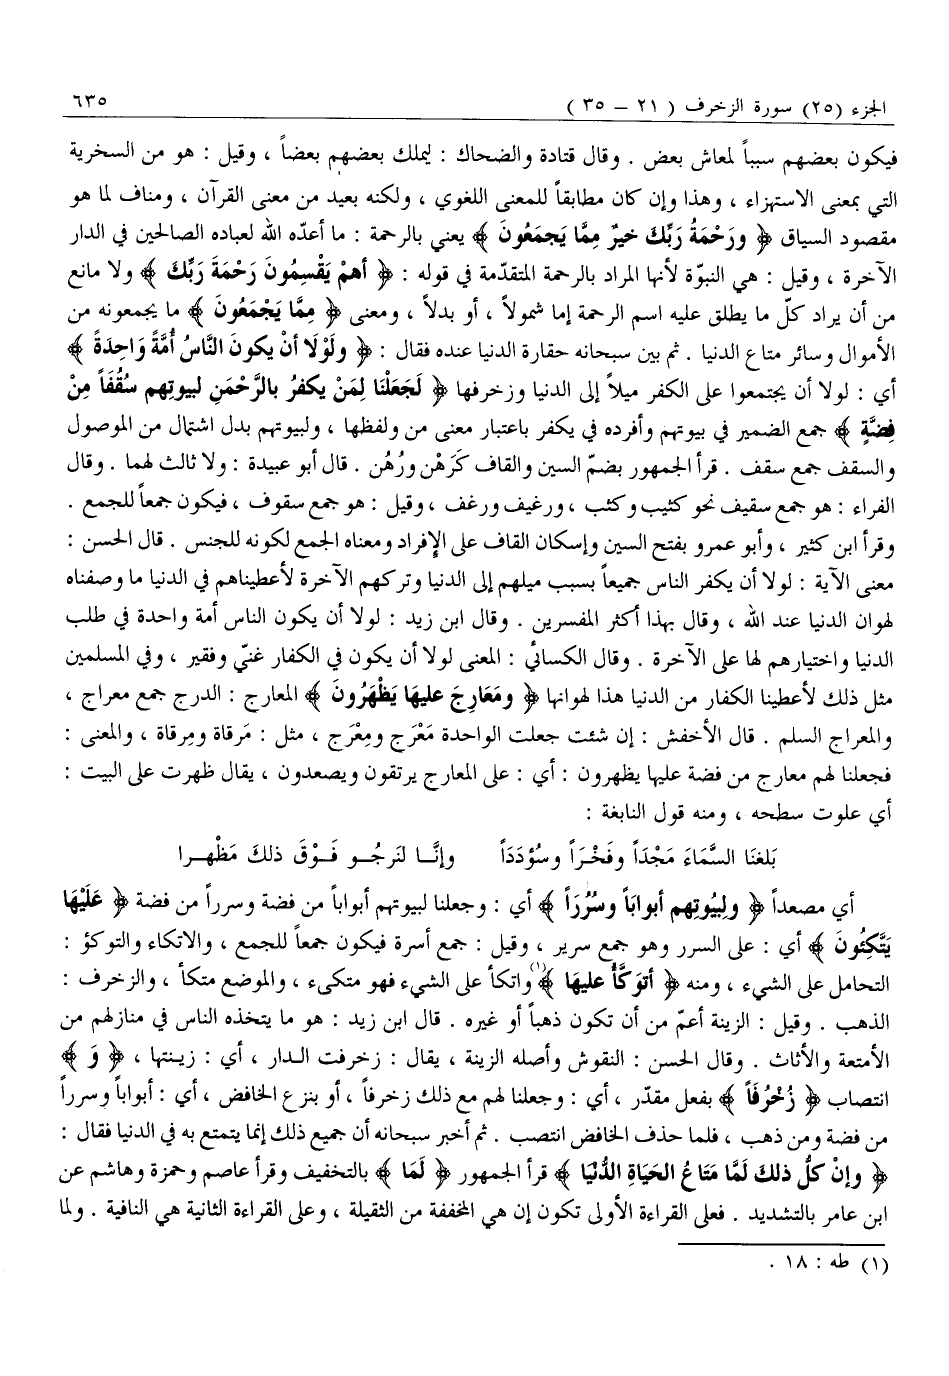 الجزء (٢٥) سورة الزخرف ( ٢١ - ٣٥ ) ٦٣٥
فيكون بعضهم سبباً لمعاش بعض . وقال قتادة والضحاك : ليملك بعضهم بعضاً ، وقيل : هو من السخرية
التي بمعنى الاستهزاء ، وهذا وإن كان مطابقاً للمعنى اللغوي ، ولكنه بعيد من معنى القرآن ، ومناف لما هو
مقصود السياق ﴿ ورَحْمَةُ رَبِّكَ خيرٌ مِمَّا يَجمَعُونَ ﴾ يعني بالرحمة : ما أعدّه الله لعباده الصالحين في الدار
الآخرة ، وقيل : هي النبوّة لأنها المراد بالرحمة المتقدّمة في قوله : ﴿ أهمْ يَقْسِمُونَ رَحْمَةَ رَبِّكَ ﴾ ولا مانع
من أن يراد كلّ ما يطلق عليه اسم الرحمة إما شمولاً ، أو بدلاً ، ومعنى ﴿ مِمَّا يَجْمَعُونَ ﴾ ما يجمعونه من
الأموال وسائر متاع الدنيا . ثم بين سبحانه حقارة الدنيا عنده فقال : ﴿ ولَوْلَا أنْ يكونَ النَّاسُ أُمَّةً وَاحِدَةً ﴾
أي : لولا أن يجتمعوا على الكفر ميلاً إلى الدنيا وزخرفها ﴿ لَجَعَلْنَا لِمَنْ يكفرُ بالرَّحْمَنِ لبيوتِهم سقُفَاً مِنْ
فِضَّةٍ ﴾ جمع الضمير في بيوتهم وأفرده في يكفر باعتبار معنى من ولفظها ، ولبيوتهم بدل اشتمال من الموصول
والسقف جمع سقف . قرأ الجمهور بضمّ السين والقاف كَرَهْن ورُهُن . قال أبو عبيدة : ولا ثالث لهما . وقال
الفراء : هو جمع سقيف نحو كثيب وكثب ، ورغيف ورغف ، وقيل : هو جمع سقوف ، فيكون جمعاً للجمع .
وقرأ ابن كثير ، وأبو عمرو بفتح السين وإسكان القاف على الإفراد ومعناه الجمع لكونه للجنس . قال الحسن :
معنى الآية : لولا أن يكفر الناس جميعاً بسبب ميلهم إلى الدنيا وتركهم الآخرة لأعطيناهم في الدنيا ما وصفناه
لهوان الدنيا عند الله ، وقال بهذا أكثر المفسرين . وقال ابن زيد : لولا أن يكون الناس أمة واحدة في طلب
الدنيا واختيارهم لها على الآخرة . وقال الكسائي : المعنى لولا أن يكون في الكفار غنّي وفقير ، وفي المسلمين
مثل ذلك لأعطينا الكفار من الدنيا هذا لهوانها ﴿ ومَعَارِجَ عليهَا يَظْهَرُونَ ﴾ المعارج : الدرج جمع معراج ،
والمعراج السلم . قال الأخفش : إن شئت جعلت الواحدة مَعْرَج ومِعْرَج ، مثل : مَرقاة ومِرقاة ، والمعنى :
فجعلنا لهم معارج من فضة عليها يظهرون : أي : على المعارج يرتقون ويصعدون ، يقال ظهرت على البيت :
أي علوت سطحه ، ومنه قول النابغة :
بَلغنَا السَّمَاءَ مَجْدَاً وفَخْرَاً وسُؤدَدَاً وإنَّا لنَرجُو فَوْقَ ذلكَ مَظْهرا
أي مصعداً ﴿ ولِبيُوتِهم أبوابَاً وسُرُرَاً ﴾ أي : وجعلنا لبيوتهم أبواباً من فضة وسرراً من فضة ﴿ عَلَيْهَا
يَتَّكِئُونَ ﴾ أي : على السرر وهو جمع سرير ، وقيل : جمع أسرة فيكون جمعاً للجمع ، والاتكاء والتوكؤ :
التحامل على الشيء ، ومنه ﴿ أتوَكَّأُ عليهَا ﴾(١) واتكأ على الشيء فهو متكىء ، والموضع متكأ ، والزخرف :
الذهب . وقيل : الزينة أعمّ من أن تكون ذهباً أو غيره . قال ابن زيد : هو ما يتخذه الناس في منازلهم من
الأمتعة والأثاث . وقال الحسن : النقوش وأصله الزينة ، يقال : زخرفت الدار ، أي : زينتها ، ﴿ وَ ﴾
انتصاب ﴿ زُخْرُفَاً ﴾ بفعل مقدّر ، أي : وجعلنا لهم مع ذلك زخرفاً ، أو بنزع الخافض ، أي : أبواباً وسرراً
من فضة ومن ذهب ، فلما حذف الخافض انتصب . ثم أخبر سبحانه أن جميع ذلك إنما يتمتع به في الدنيا فقال :
﴿ وإنْ كلُّ ذلكَ لَمَّا مَتَاعُ الحَيَاةِ الدُّنْيَا ﴾ قرأ الجمهور ﴿ لَمَا ﴾ بالتخفيف وقرأ عاصم وحمزة وهاشم عن
ابن عامر بالتشديد . فعلى القراءة الأولى تكون إن هي المخففة من الثقيلة ، وعلى القراءة الثانية هي النافية . ولما
(١) طه : ١٨ .